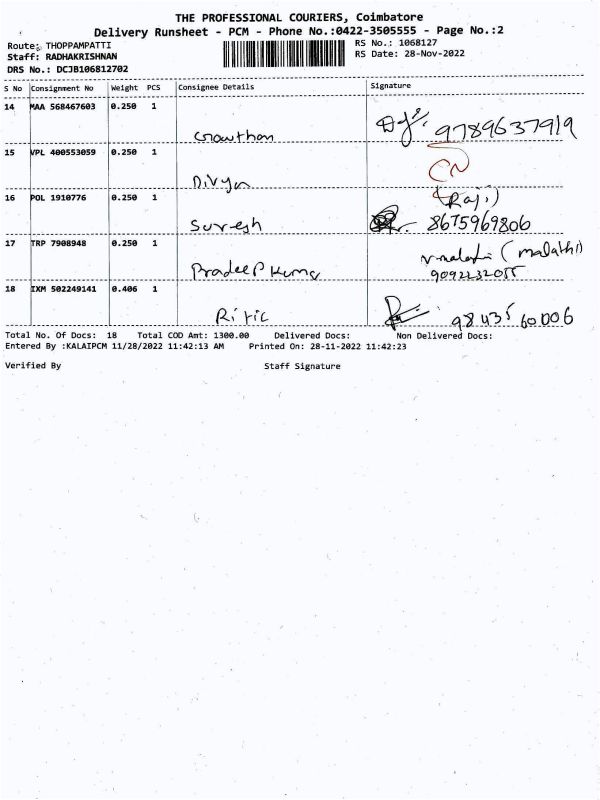 THE PROFESSIONAL COURIERS, Coimbatore
Delivery Runsheet - PCM - Phone No.:0422-3505555 - Page No.:2
Route: THOPPAMPATTI RS No.: 1068127
Staff: RADHAKRISHNAN RS Date: 28-Nov-2022
DRS No.: DCJB106812702
S No Consignment No Weight PCS Consignee Details Signature
14 MAA 568467603 0.250 1
Gowthan 9789637919
15 VPL 400553059 0.250 1
Divya
16 POL 1910776 0.250 1 (Raji)
Suresh 8675969806
17 TRP 7908948 0.250 1 (malathi)
Pradeep Kumar 9092232055
18 IXM 502249141 0.406 1
Ritic 98435 60006
Total No. Of Docs: 18 Total COD Amt: 1300.00 Delivered Docs: Non Delivered Docs:
Entered By :KALAIPCM 11/28/2022 11:42:13 AM Printed On: 28-11-2022 11:42:23
Verified By Staff Signature